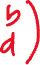 b
d)